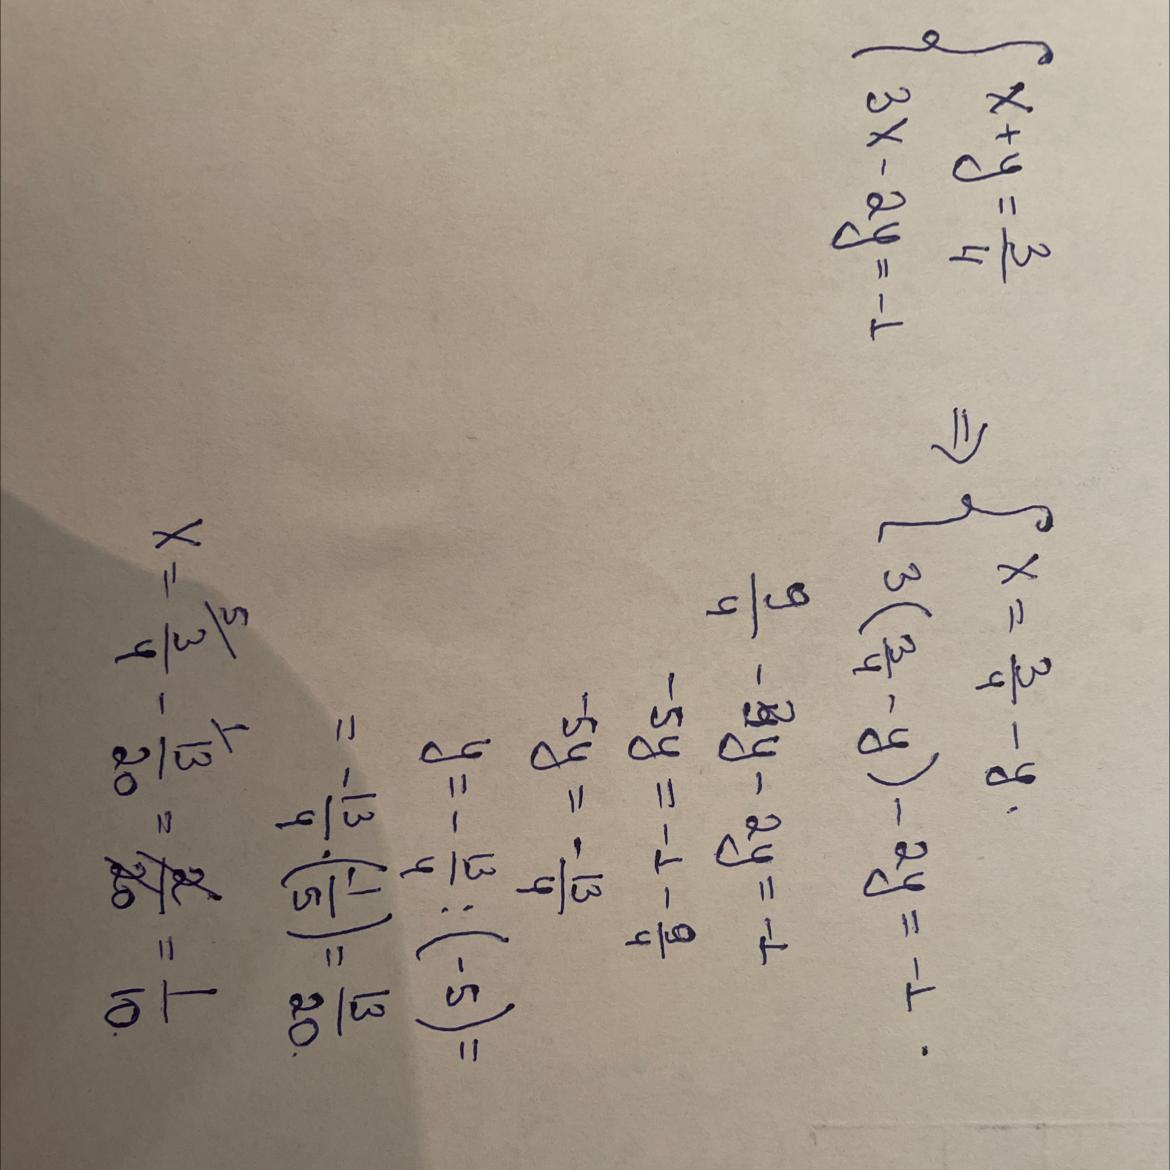 { x + y = 3/4
3x - 2y = -1
⇒ { x = 3/4 - y.
3(3/4 - y) - 2y = -1.
9/4 - 3y - 2y = -1
-5y = -1 - 9/4
-5y = -13/4
y = -13/4 : (-5) =
= -13/4 · (-1/5) = 13/20.
x = 5/ 3/4 - 1/ 13/20 = 2/20 = 1/10.